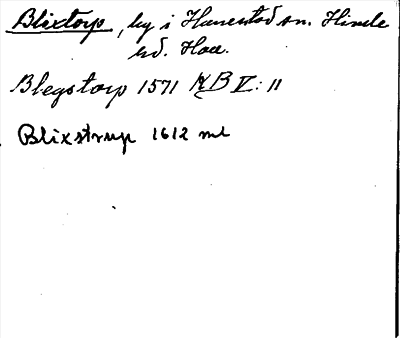 Blixtorp, by i Hanestad sn. Himle
hd. Hall.
Blegstorp 1571 NB V: 11
Blixstrup 1612 ml